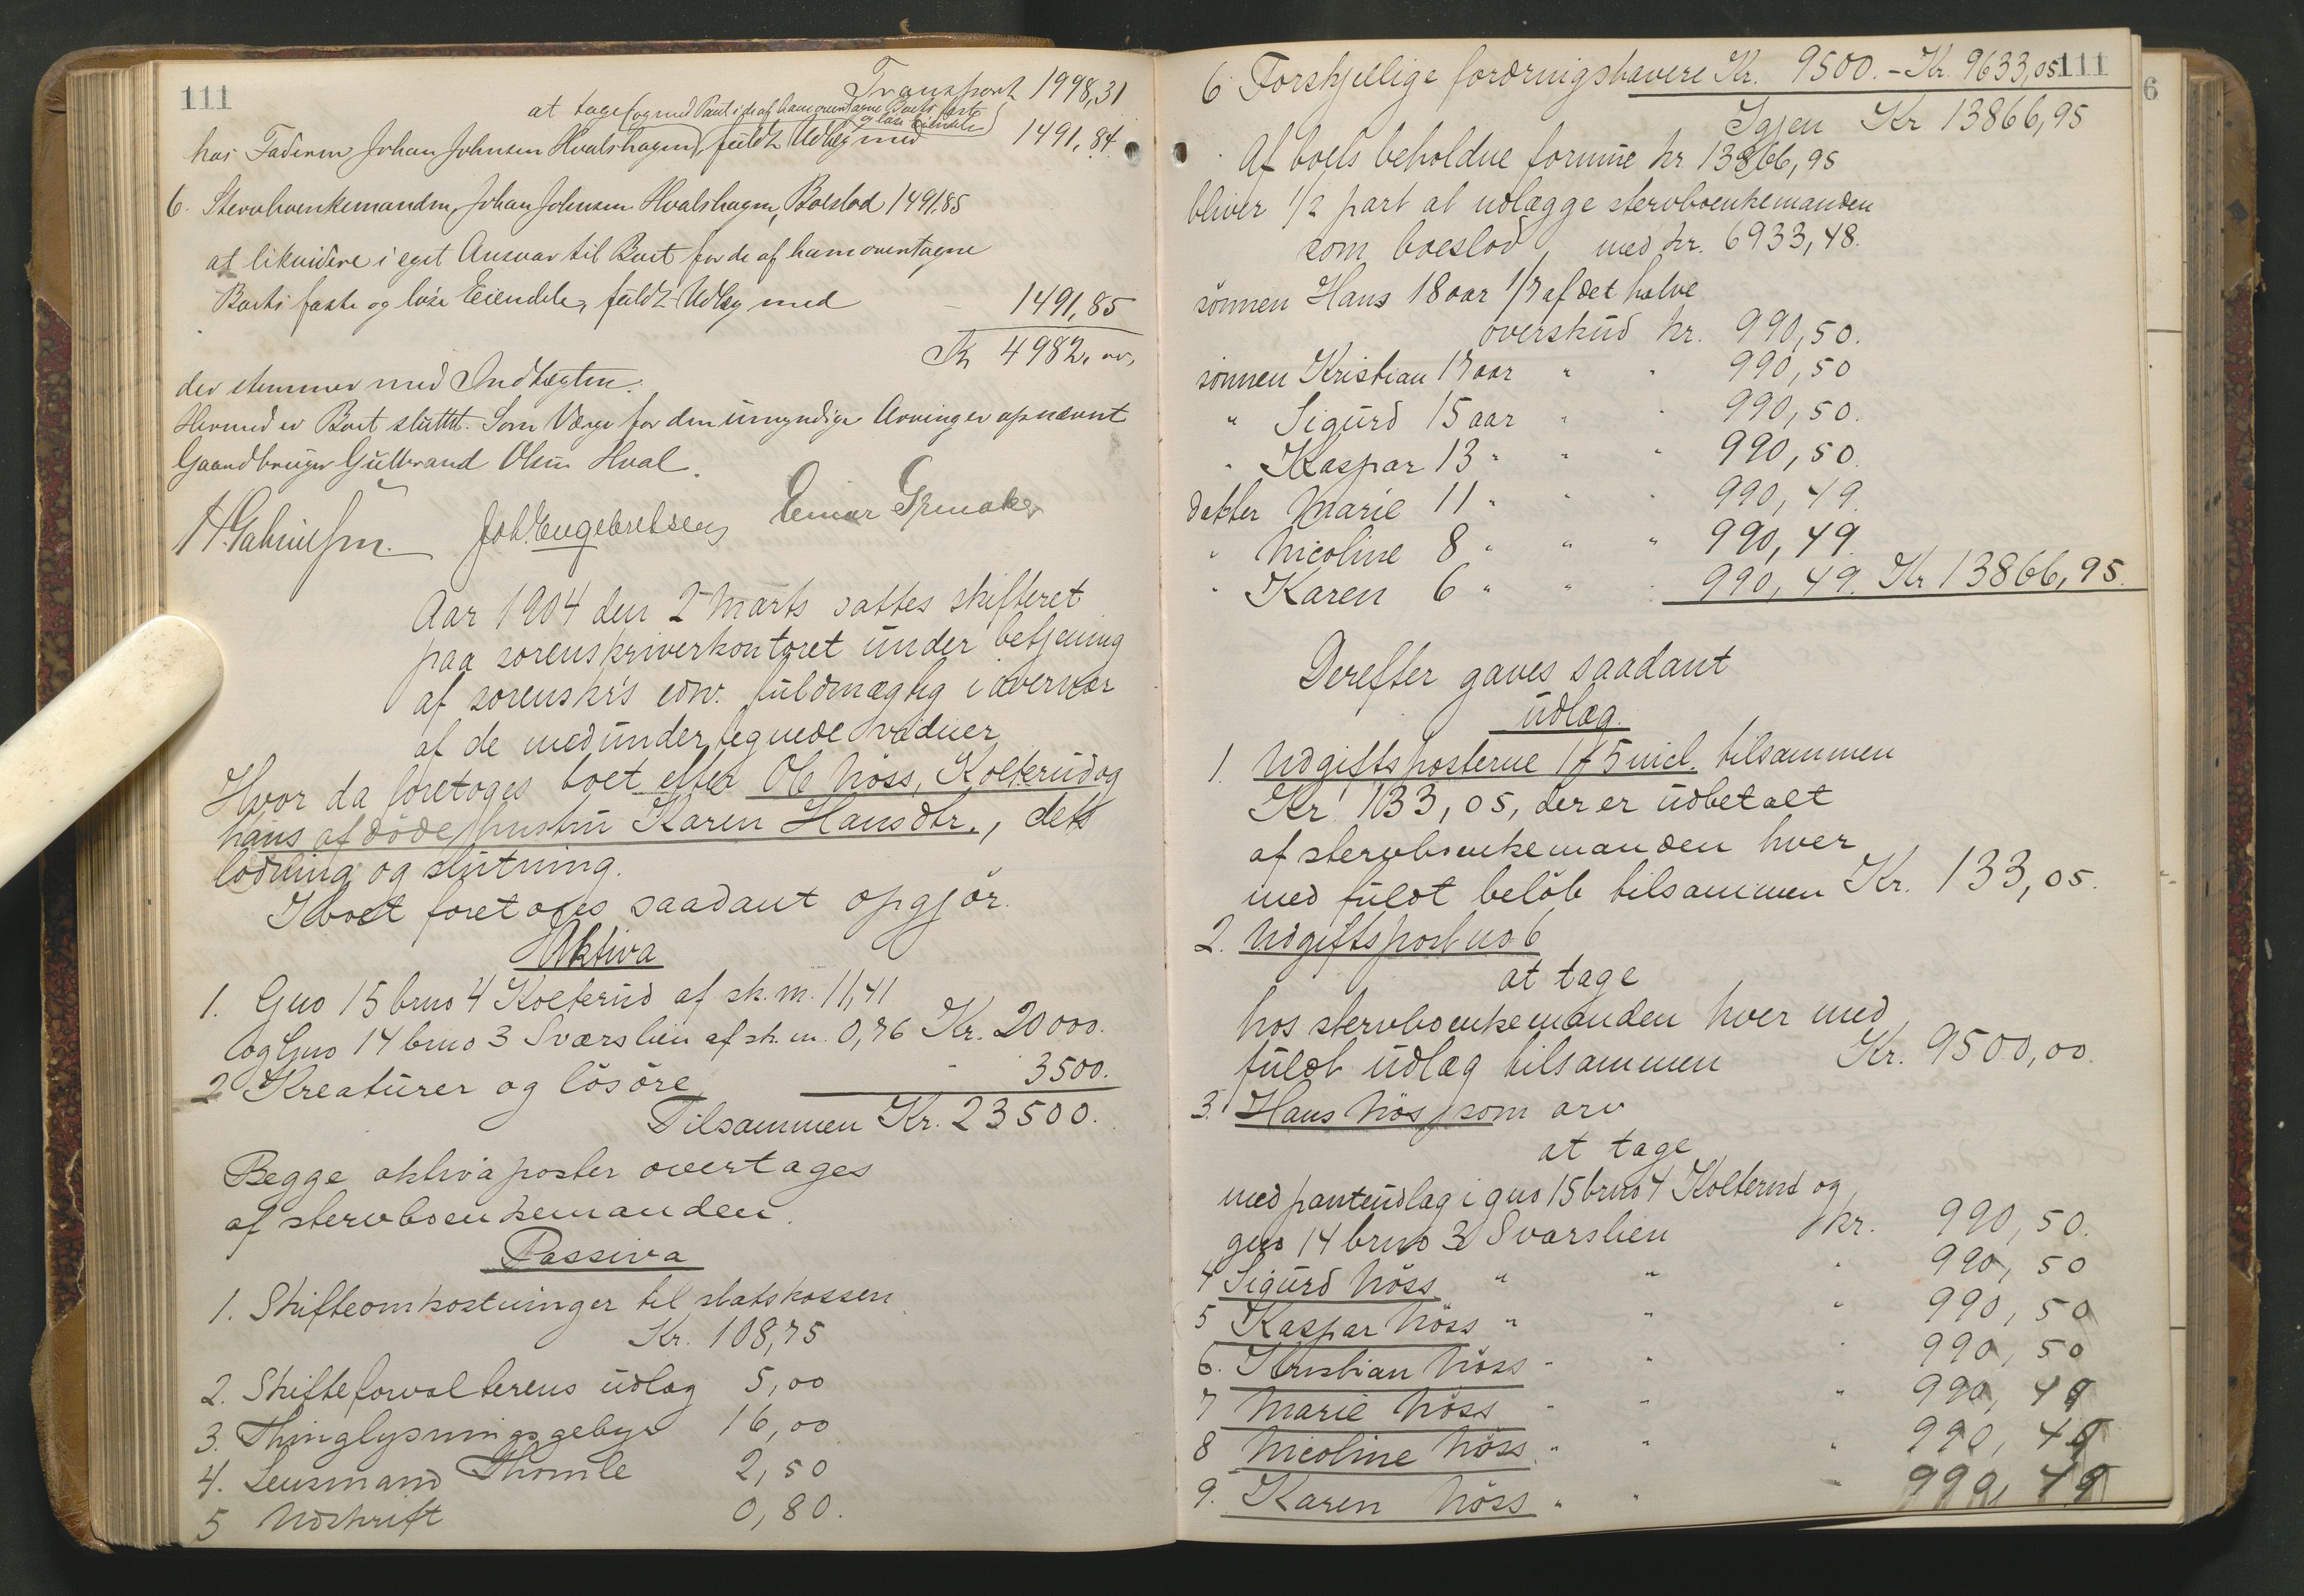 111
Transport 1998,31
at tage (og med Pant i de af ham overtagne Boets faste
og løse Eiendele)
hos Faderen Johan Johnsen Hvalshagen, fuldt Udlæg med 1491,84
6. Stervboenkemanden, Johan Johnsen Hvalshagen, Boeslod 1491,85
at likvidere i eget Ansvar til Boet for de af ham overtagne
Boets faste og løse Eiendele, fuldt Udlæg med - 1491,85
Kr 4982,00,
der stemmer med Indtægten.
Hermed er Boet sluttet. Som Værge for den umyndige Arvinger opnævnt
Gaardbruger Gulbrand Olsen Hval.
Joh. Engebretsen Einar
Aar 1904 den 2 Marts sattes skifteret
paa sorenskriverkontoret under betjening
af sorenskr's edsv. fuldmægtig i overvær
af de medundertegnede vidner
Hvor da foretoges boet efter Ole Høss, Kolterud og
hans afdøde hustru Karen Hansdtr., dets
lodning og slutning.
I boet foretoges saadant opgjör.
Aktiva
1. Gno 15 brno 4 Kolterud af sk.m. 11,41
og Gno 14 brno 3 Sværslien af sk.m. 0,76 Kr. 20000.
2 Kreaturer og lösöre " 3500.
Tilsammen Kr. 23500.
Begge aktivaposter overtages
af stervboenkemanden.
Passiva
1. Skifteomkostninger til statskassen
Kr. 108,75
2. Skifteforvalterens udlæg 5,00
3. Thinglysningsgebyr 16,00
4. Lensmand Thomle 2,50
5 Udskrift 0,80.
111
6
6 Forskjellige fordringshavere Kr. 9500. - Kr. 9633,05
Igjen Kr 13866,95
Af boets beholdne formue kr 13866,95
bliver 1/2 part at udlægge stervboenkemanden
som boeslod, med kr. 6933,48.
sönnen Hans 18 aar 1/7 af det halve
overskud kr. 990,50.
sönnen Kristian 17 aar " " 990,50
" Sigurd 15 aar " " 990,50.
" Kaspar 13 " " " 990,50.
datter Marie 11 " " " 990,49.
" Nicoline 8 " " " 990,49.
" Karen 6 " " " 990,49. Kr 13866,95.
Derefter gaves saadant
udlæg.
1. Udgiftsposterne 1 t 5 incl. tilsammen
Kr. 133,05, der er udbetalt
af stervboenkemanden hver
med fuldt belöb tilsammen Kr. 133,05.
2. Udgiftspost no 6
at tage
hos stervboenkemanden hver med
fuldt udlæg tilsammen Kr. 9500,00.
3. Hans Höss som arv
at tage
med panteudlæg i gno 15 brno 4 Kolterud og
gno 14 brno 3 Sværslien kr. 990,50.
4 Sigurd Höss " " " 990,50
5 Kaspar Höss " " " 990,50
6. Kristian Höss " " " 990,50
7 Marie Höss " " " 990,49
8 Nicoline Höss " " " 990,49
9. Karen Höss " " " 990,49